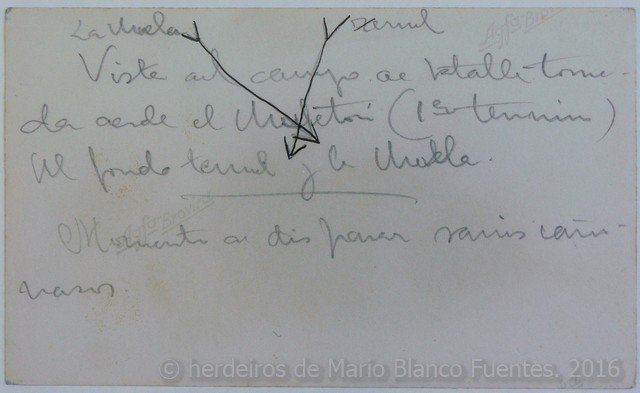 La Muela Teruel
Agfa Brovira
Vista del campo de batalla toma-
da desde el Muleton (1er termino)
Al fondo teruel y la Muela.
Agfa Brovira
Momento de disparar varios caño-
nazos.
© herdeiros de Mario Blanco Fuentes. 2016